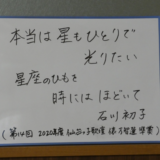 本当は星もひとりで
光りたい
星座のひもを
時にはほどいて
石川初子
(第14回 2020年度 仙台